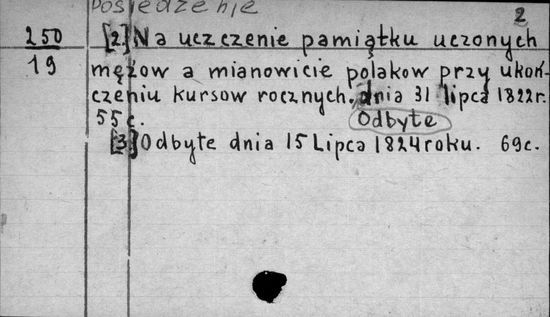 Posiedzenie
2
250 [2.] Na uczczenie pamiątku uczonych
19 mężow a mianowicie polakow przy ukoń-
czeniu kursow rocznych. dnia 31 lipca 1822r.
55c. Odbyte
[3] Odbyte dnia 15 Lipca 1824 roku. 69c.